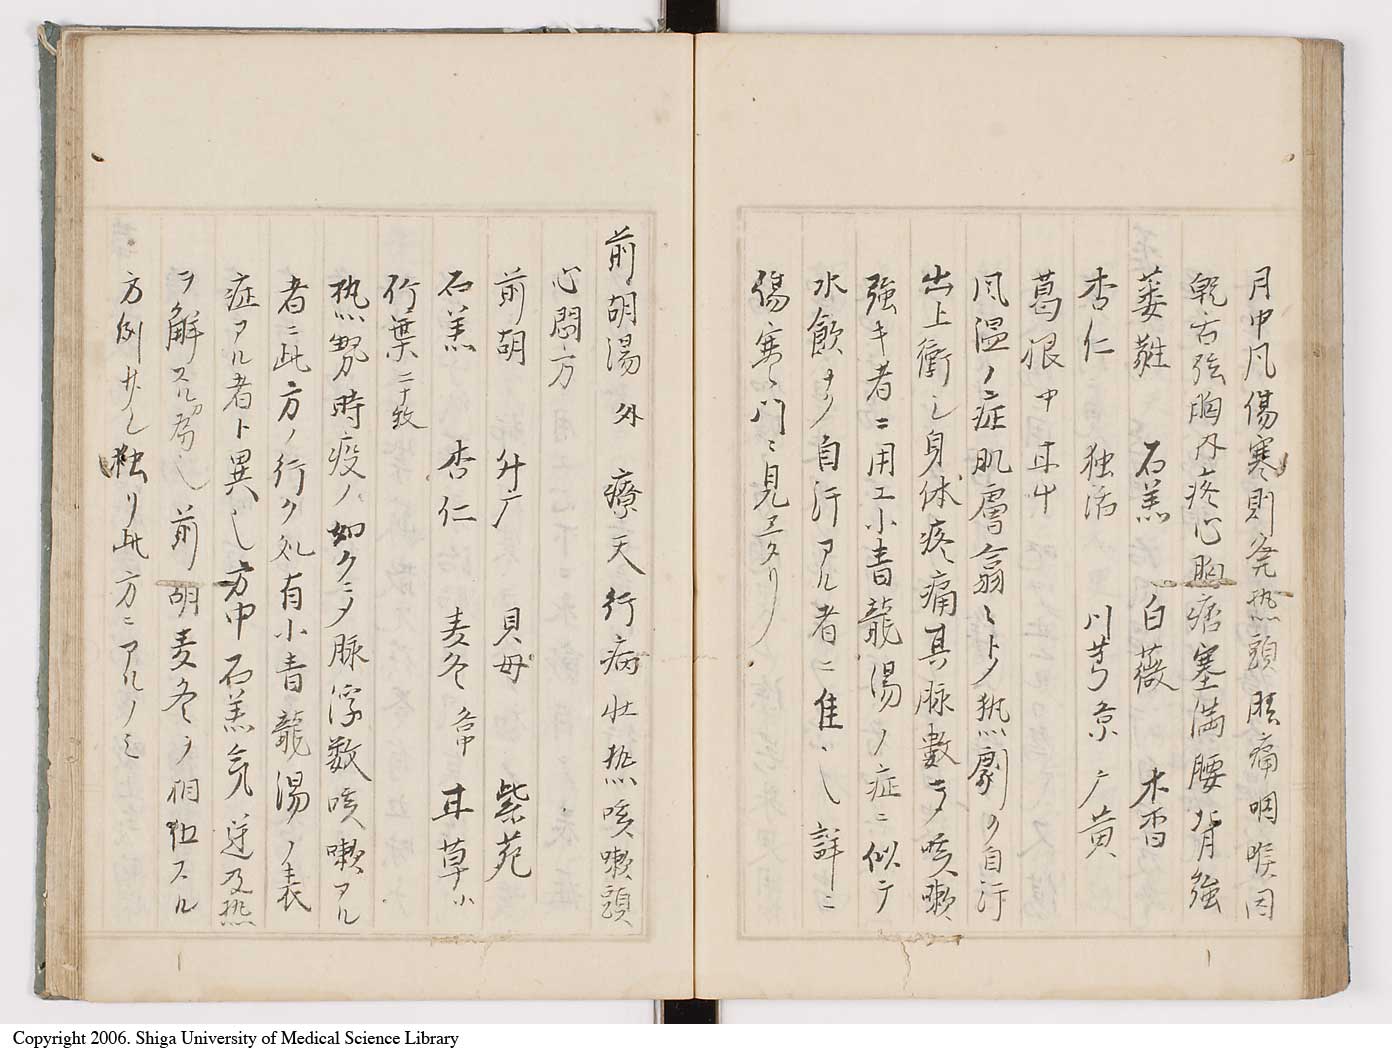 月中風傷寒則発热頭脳痛咽喉因
乾舌強胸内疼心胸痞塞満腰背強
萎蕤 石羔 白薇 木香
杏仁 独活 川芎 京广黄
葛根中 甘中
风温ノ症肌膚翕ミトノ热劇ク自汗
出上衝シ身体疼痛其脉數キヲ咳嗽
強キ者ニ用エ小青龍湯ノ症ニ似テ
水飲ナク自汗アル者ニ隹シ詳ニ
傷寒ノ門ニ見エタリ
前胡湯 外 療天行病壮热咳嗽頭
心悶方
前胡 升广 貝母 紫苑
石羔 杏仁 麦冬 各中 甘草小
竹葉二十枚
热勢時疫ノ如クニメ脉浮数咳嗽アル
者ニ此方ノ行ク処有小青龍湯ノ表
症アル者ト異シ方中石羔気逆及热
ヲ解スル為シ前胡麦冬ヲ相伍スル
方例サシ独リ此方ニアルノミ
Copyright 2006. Shiga University of Medical Science Library